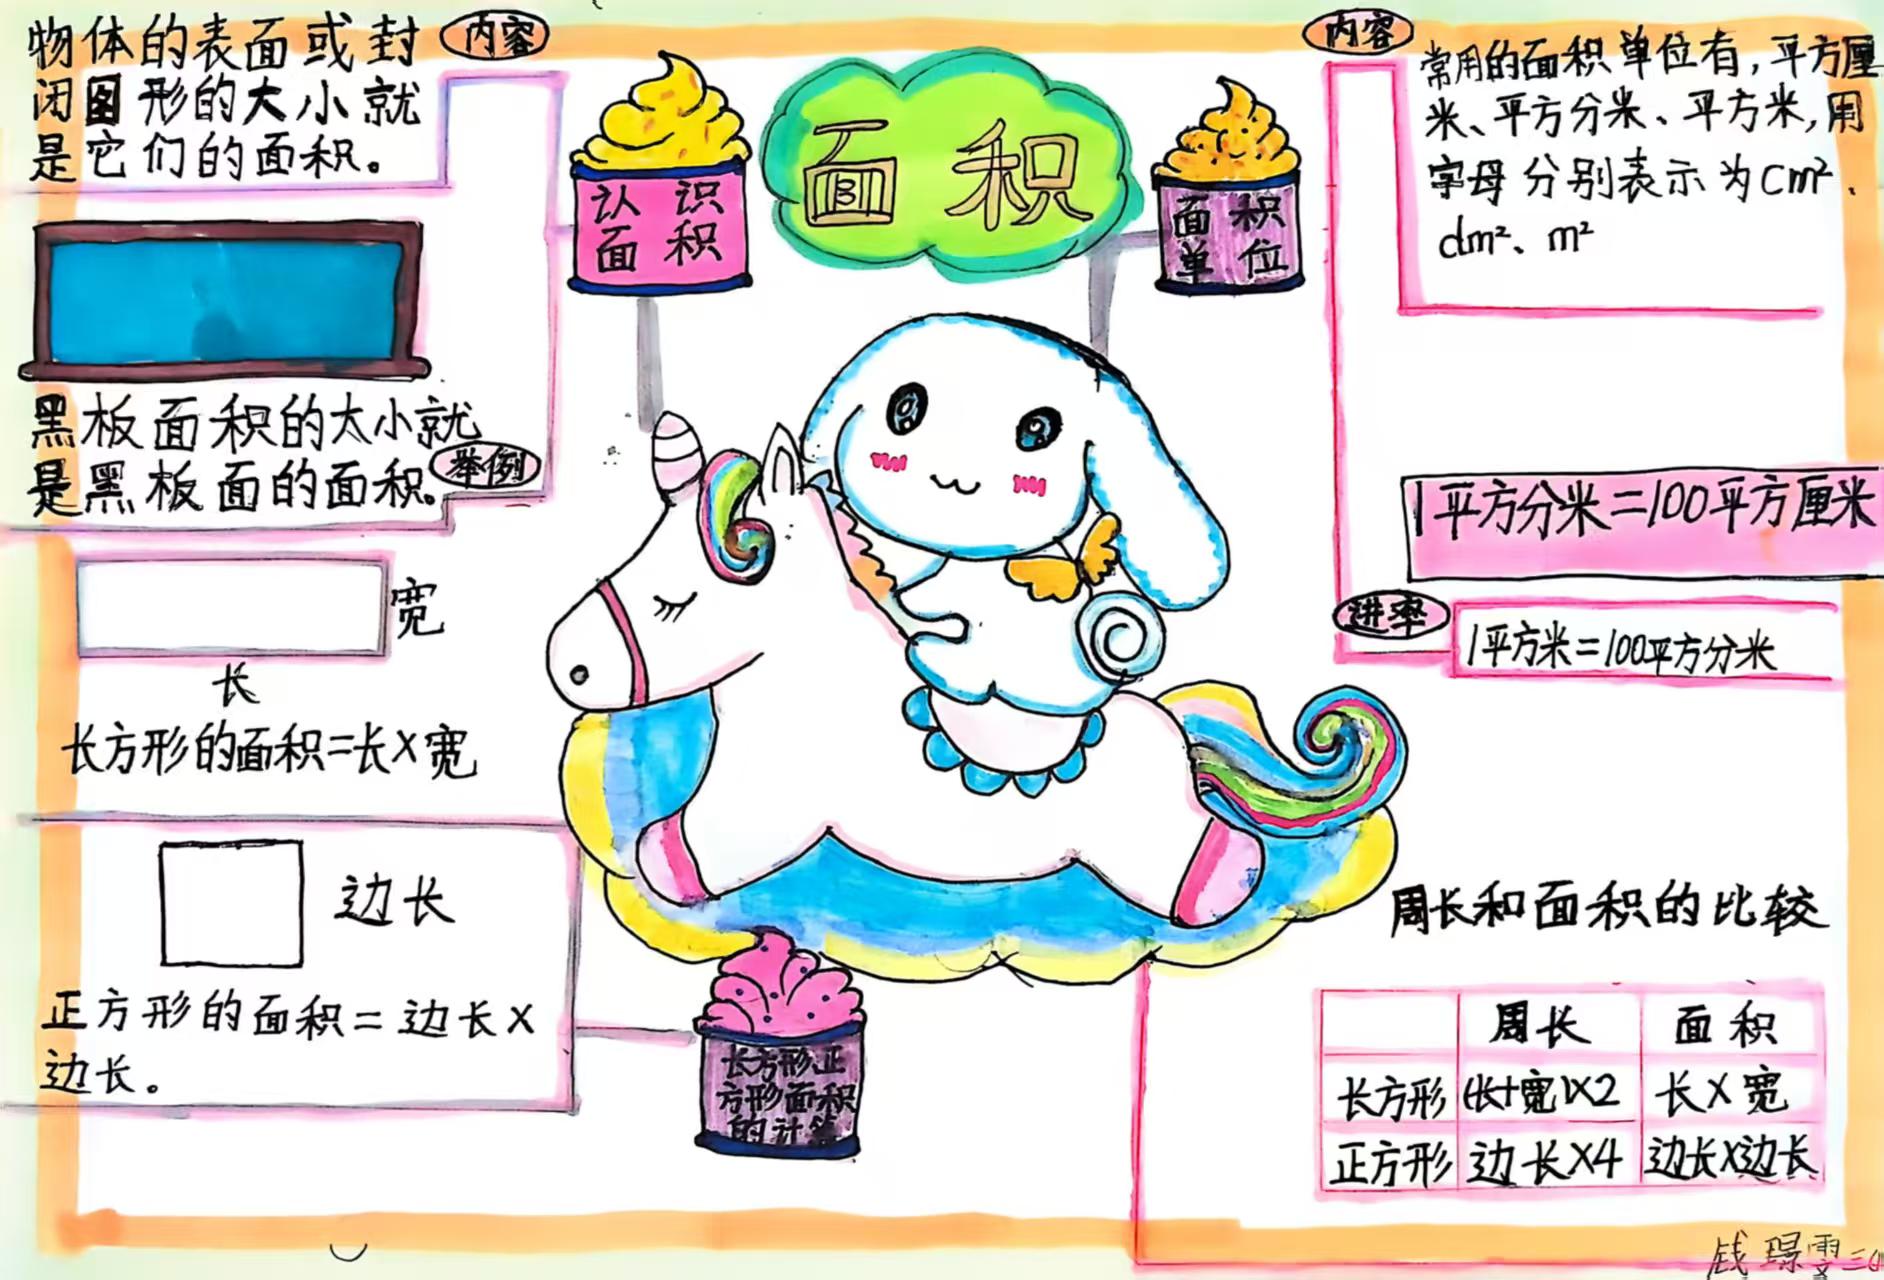 面积
内容
物体的表面或封
闭图形的大小就
是它们的面积。
认识
面积
黑板面积的大小就
是黑板面的面积。
举例
宽
长
长方形的面积=长×宽
边长
正方形的面积=边长×
边长。
长方形正
方形面积
的计算
内容
常用的面积单位有,平方厘
米、平方分米、平方米,用
字母分别表示为cm²、
dm²、m²
面积
单位
1平方分米=100平方厘米
进率
1平方米=100平方分米
周长和面积的比较
周长 面积
长方形 (长+宽)×2 长×宽
正方形 边长×4 边长×边长
钱璟雯